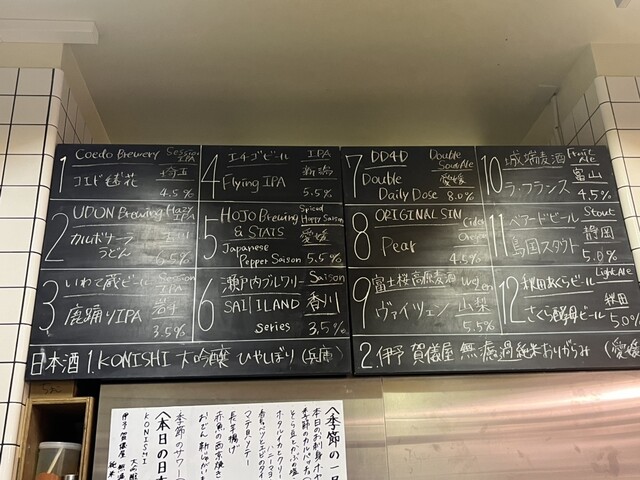 1 Coedo Brewery Session IPA
コエド 毬花 埼玉
4.5%
2 UDON Brewing Hazy IPA
カルボナーラうどん
6.5%
3 いわて蔵ビール Session IPA
鹿踊りIPA 岩手
3.5%
4 エチゴビール IPA
新潟
Flying IPA 5.5%
5 HOJO Brewing & STATS Spiced Hoppy Saison
愛媛
Japanese Pepper Saison 5.5%
6 瀬戸内ブルワリー Saison
SAI ISLAND series 香川
3.5%
7 DD4D Double Sour Ale
Double 愛媛
Daily Dose 8.0%
8 ORIGINAL SIN Cider
Pear
4.5%
9 富士桜高原麦酒 Weizen
ヴァイツェン 山梨
5.5%
10 城端麦酒 Fruit Ale
富山
ラ・フランス 4.5%
11 ベアードビール Stout
静岡
島国スタウト 5.0%
12 秋田あくらビール Light Ale
秋田
さくら酵母ビール 5.0%
日本酒 1. KONISHI 大吟醸 ひやしぼり (兵庫)
2. 伊予 賀儀屋 無濾過純米おりがらみ (愛媛
〈季節の一品
本日のお刺身
季節のカルパッチョ
そら豆と
ホタルイカと
マテ貝
長芋揚げ
赤魚の西京焼き
おでん
季節のサワー
〈本日の日本
KONISHI
大吟醸
伊予賀儀屋
純米